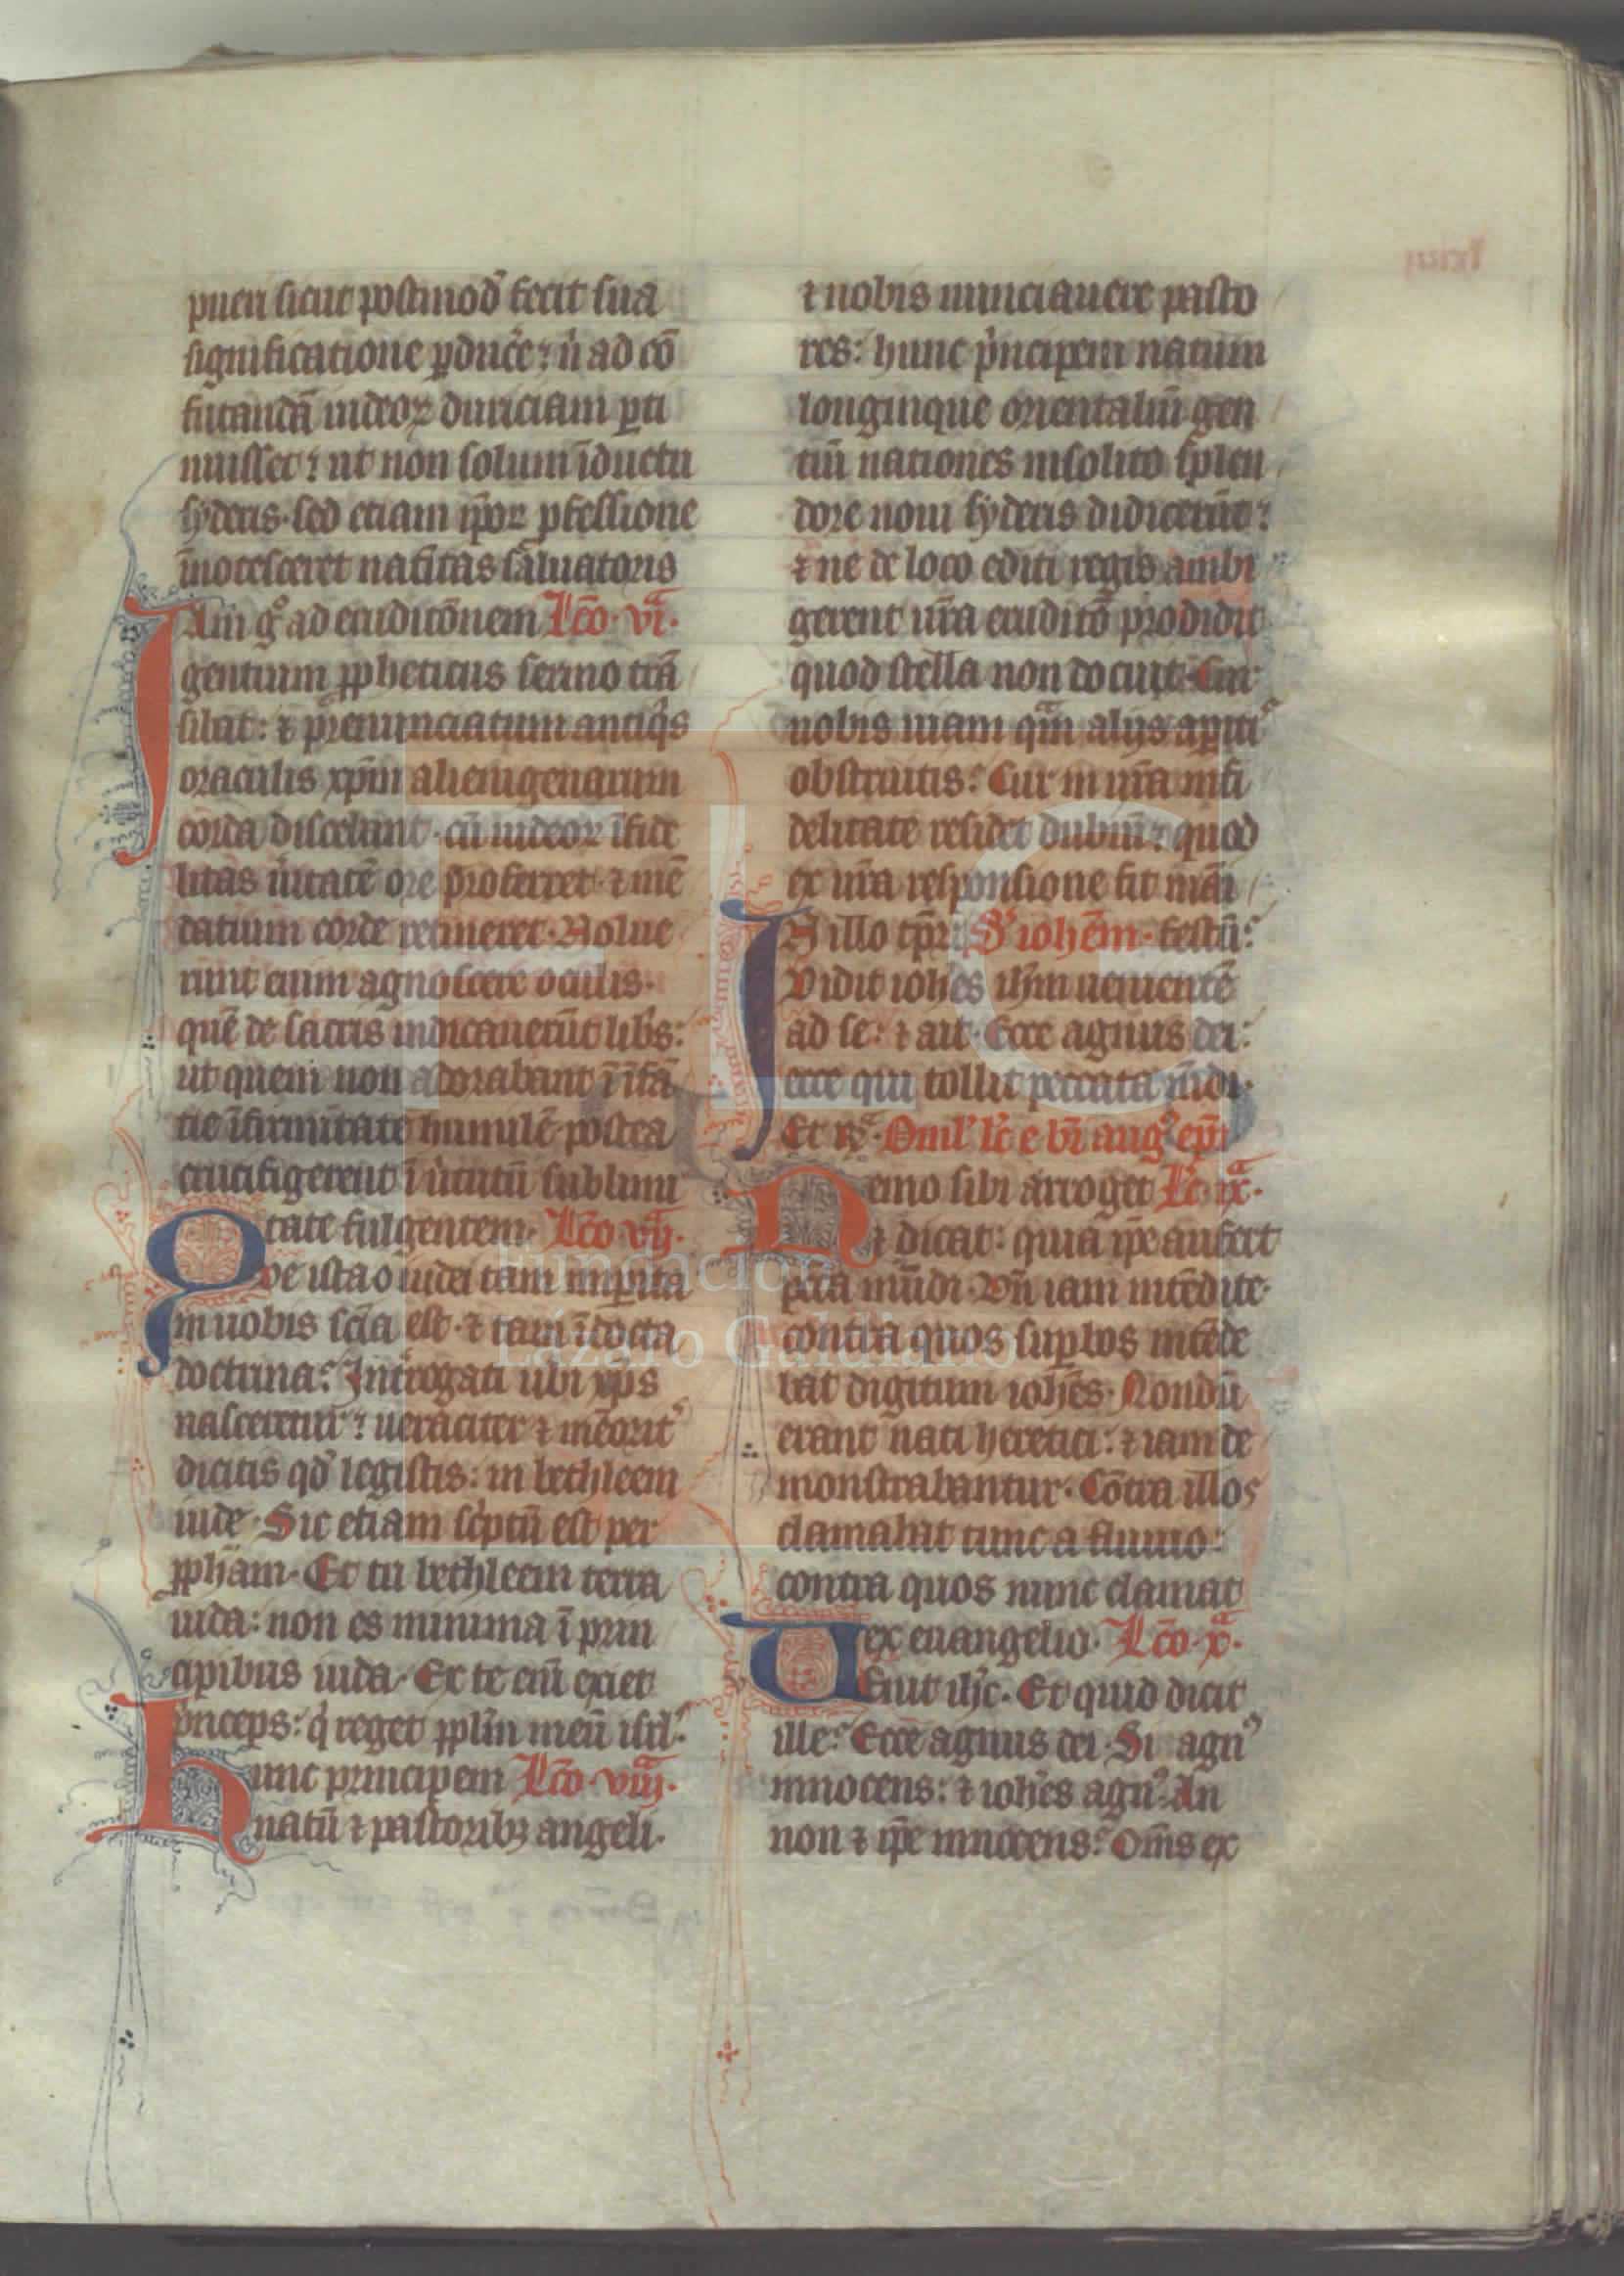 pueri sicut postmod᷒ fecit sua
significatione ꝑduc̓e: n̓ ad cō
futandā iudeoꝝ duriciam ꝑti
nuisset: ut non solum īductu
syderis. sed etiam ip̄oꝝ ꝓfessione
īnotesceret natiuitas saluatoris
Iam gͦ ad eruditōnem Lc̄o. vi.ͣ
gentium ꝓpheticus sermo trā
sibat: ⁊ p̄renunciatum antiq̓s
oraculis xp̄m alienigenarum
corda discebant. cū iudeoꝝ īfide
litas u̓itatē ore proferret. ⁊ mē
datium corde retineret. Nolue
runt enim agnoscere oculis.
quē de sacris indicauerūt lib̓s:
ut quem non adorabant ī īfā
tie īfirmitate humilē. postea
crucifigerent ī u̓tutū sublimi
tate fulgentem. Lc̄o vij.ͣ
Que ista o iudei tam imꝑita
in uobis sc̄ia est. ⁊ tam īdocta
doctrina: Int̓rogati ubi xp̄s
nasceretur: ueraciter ⁊ mēorit᷒
dicitis qd̓ legistis: in bethleem
iude. Sic etiam sc̓ptū est per
ꝓph̄am. Et tu bethleem terra
iuda: non es minima ī prin
cipibus iuda. Ex te eni̅ exiet
p̓nceps: q̓ reget ꝓpl̄m meū isrl̓.
Hunc principem Lc̄o. viij.ͣ
natū ⁊ pastoribꝫ angeli.
⁊ nobis nunciauere pasto
res: hunc p̓ncipem natum
longinque orientaliū gen
tiū nationes insolito splen
dore noui syderis didicerūt:
⁊ ne de loco editi regis ambi
gerent ur̄a eruditō prodidit
quod stella non docuit. Cur
uobis uiam quā alijs aꝑitis
obstruitis: Cur in ur̄a infi
delitate residet dubiū: quod
ex ur̄a responsione fit mani
In illo tp̄r: S᷒ ioh̄em. festū:
Vidit ioh̄es ih̄m uenientē
ad se: ⁊ ait. Ecce agnus dei:
ecce qui tollit peccata mūdi.
Et rͣ. Oml᷒ lc̄ e bī aug᷒ ep̄i
Nemo sibi arroget Lc̄. ix.ͣ
⁊ dicat: quia ip̄e aufert
pcc̄a mūdi. Vn̄ iam intēdite.
contra quos suꝑbos intēde
bat digitum ioh̄es. Nondū
erant nati heretici: ⁊ iam de
monstrabantur. Cōtra illos
clamabat tunc a fluuio:
contra quos nunc clamat
ex euangelio. Lc̄o. x.ͣ
Venit ih̄c. Et quid dicit
ille: Ecce agnus dei. Si agn᷒
innocens: ⁊ ioh̄es agn᷒. An
non ⁊ ip̄e innocens: Om̄s ex
FLG
Fundación
Lázaro Galdiano